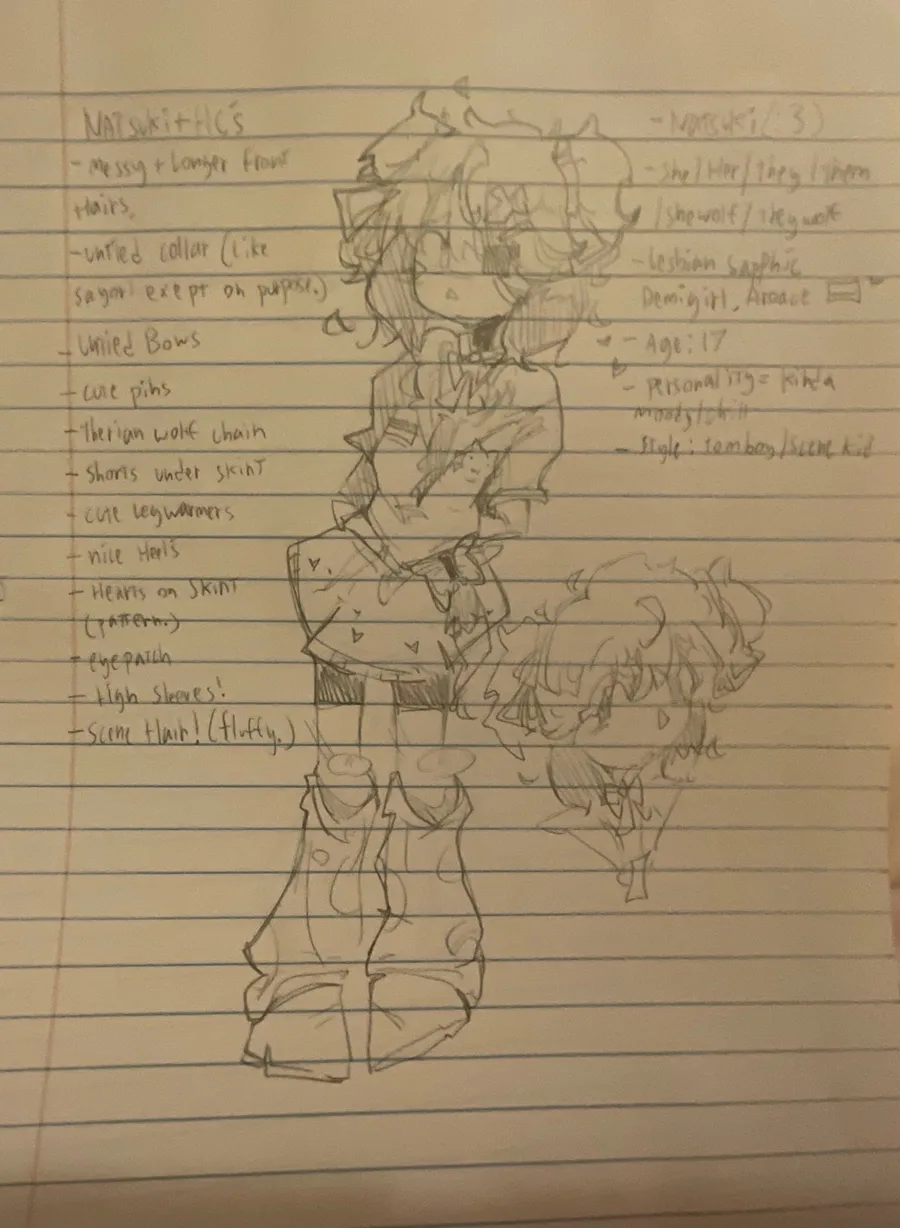 NATSUKI + HC's
- messy + Longer front
Hairs.
- untied collar (like
sayori exept on purpose.)
- Untied Bows
- cute pins
- Therian wolf chain
- Shorts under skirt
- cute legwarmers
- nice Heels
- Hearts on skirt
(pattern.)
- eyepatch
- High Sleeves!
- Scene Hair! (fluffy.)
- NATSUKI (:3)
- She/Her/they/them
/shewolf/theywolf
- Lesbian sapphic
Demigirl, Aroace
- Age: 17
- personality = kinda
moody/chill
- Style: tomboy/scene kid